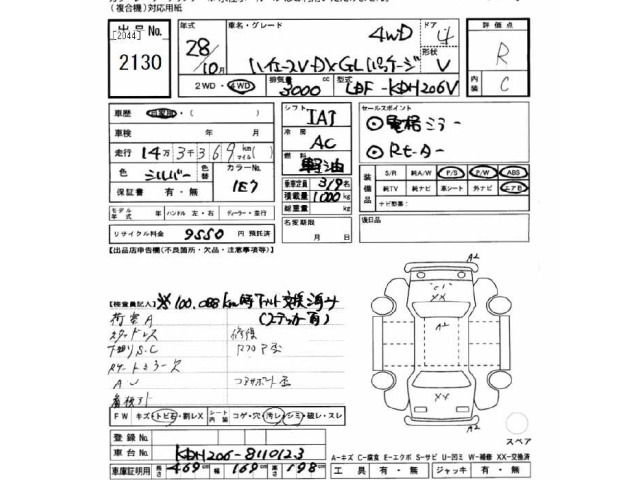 (複合機)対応用紙
出品No. [2044]
2130
年式 28/10月
車名・グレード ハイエースV DX GLパッケージ 4WD
ドア 4
形状 V
評価点 R
内装 C
2WD・4WD
排気量 3000 cc
型式 LDF-KDH206V
車歴 自家用・( )
車検 年 月
走行 14万3千369 km マイル( )
色 シルバー
カラーNo. 1E7
保証書 有・無
モデル年式 年 ハンドル 左・右 ディーラー・並行
リサイクル料金 9550 円 預託済
シフト IAT
冷房 AC
燃料 軽油
乗車定員 3/9名
積載量 1000 kg
総重量 kg
名変期限 月 日
セールスポイント
◎電格ミラー
◎Rモーター
装備品 S/R 純A/W P/S P/W ABS
純TV 純ナビ 革シート 外ナビ エアB
ナビ型番:
後日品
【出品店申告欄(不良箇所・欠品・注意事項等)】
【検査員記入】 ※100,088km時 メーター交換済み
(ステッカー有)
荷室A
スタッドレス 修復
下廻りS.C
AU コアサポート歪
FW キズ・トビ石・割レX シート内張 コゲ・穴・汚レ・シミ・破レ・スレ
登録No.
車台No. KDH206-8110123
車庫証明用 長さ 469cm 幅 169cm 高さ 198cm
A2
XX
A2
XX
A2
スペア
A-キズ C-腐食 E-エクボ S-サビ U-凹ミ W-補修 XX-交換済
工具 有・無 ジャッキ 有・無